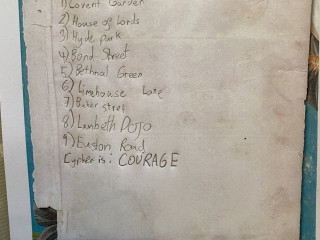 1) Covent Garden
2) House of Lords
3) Hyde park
4) Bond Street
5) Bethnal Green
6) Limehouse Lane
7) Baker stret
8) Lambeth DOJO
9) Euston Road
Cypher is: COURAGE